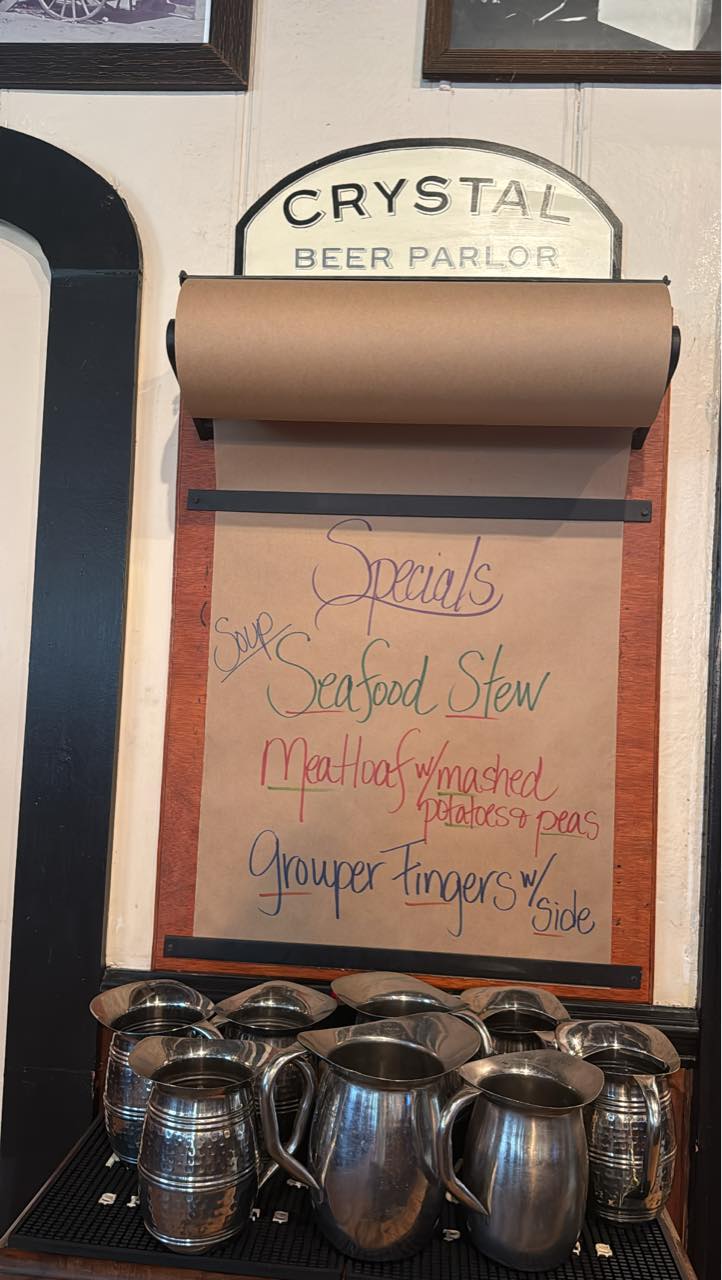 CRYSTAL
BEER PARLOR
Specials
Soup
Seafood Stew
Meatloaf w/mashed
potatoes & peas
Grouper Fingers w/
Side